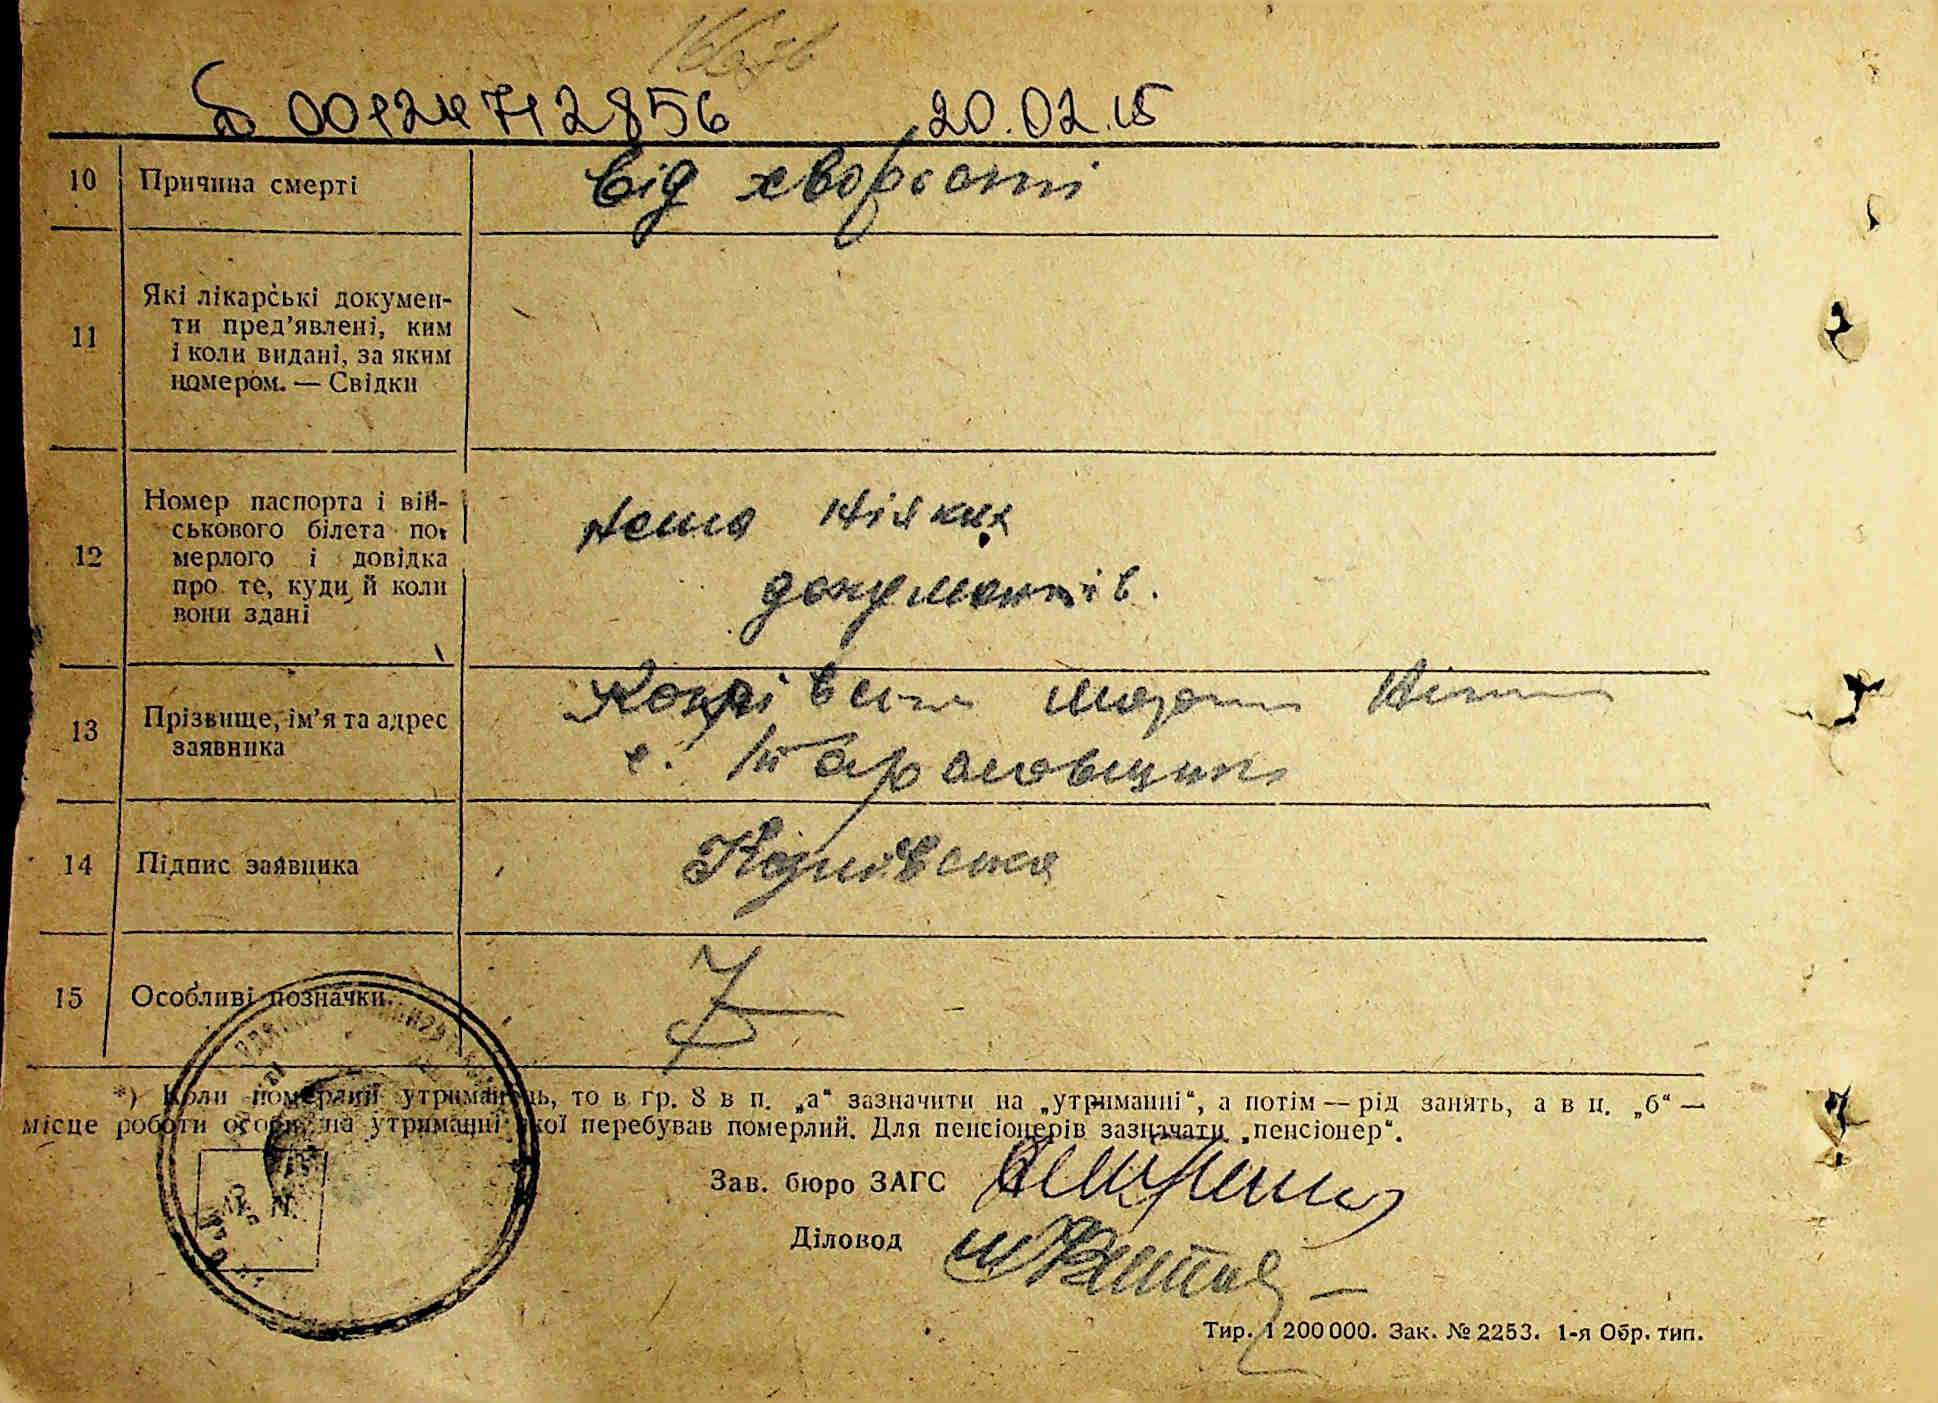 00124712856 20.02.15
10 Причина смерті від хворости
11 Які лікарські докумен-
ти пред'явлені, ким
і коли видані, за яким
номером. — Свідки
12 Номер паспорта і вій-
ськового білета по-
мерлого і довідка
про те, куди й коли
вони здані
нема ніяких
документів.
13 Прізвище, ім'я та адрес
заявника
с. Тарасовщина
14 Підпис заявника
15 Особливі позначки.
*) Коли померлий утриманець, то в гр. 8 в п. „а“ зазначити на „утриманні“, а потім — рід занять, а в п. „б“ —
місце роботи особи, на утриманні якої перебував померлий. Для пенсіонерів зазначати „пенсіонер“.
Зав. бюро ЗАГС
Діловод
Тир. 1 200 000. Зак. № 2253. 1-я Обр. тип.